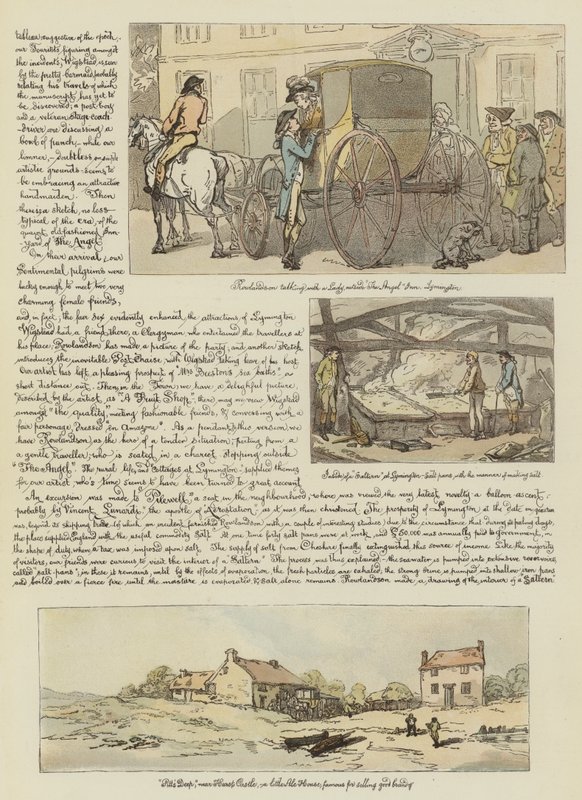 tableau suggestive of the epoch,
our Tourists figuring amongst
the incidents; Wigstead is seen
by the pretty barmaid, probably
relating his travels of which
the manuscript has yet to
be discovered; a post boy
and a veteran stage coach
driver are discussing a
bowl of punch, while our
limner, doubtless on subtle
artistic grounds seems to
be embracing an attractive
handmaiden. Then
there is a sketch, no less
typical of the era, of the
quaint old fashioned Inn
yard of "The Angel"
On their arrival, our
Sentimental pilgrims were
lucky enough to meet two very
charming female friends,
Rowlandson talking with a Lady, outside "The Angel" Inn. Lymington.
and, in fact, the fair sex evidently enhanced the attractions of Lymington
Wigstead had a friend there, a Clergyman who entertained the travellers at
his place; Rowlandson has made a picture of the party, and another sketch
introduces the inevitable Post Chaise with Wigstead taking leave of his host
Our artist has left a pleasing prospect of "Mrs Beeston's sea baths" a
short distance out. Then in the Town, we have a delightful picture,
described by the artist, as "A Fruit Shop," there, may we view Wigstead
amongst "the Quality," meeting fashionable friends, & conversing with a
fair personage dressed "en Amazone". As a pendant to this version we
have Rowlandson, as the hero of a tender situation, parting from a
a gentle traveller, who is seated in a chariot stopping outside
"The Angel". The rural life, and Cottages at Lymington supplied themes
for our artist who's time seems to have been turned to great account
Inside of a "Saltern" at Lymington - Salt pans, with the manner of making salt
An excursion was made to Pilewell, "a seat in the neighbourhood," where was viewed the very latest novelty a balloon ascent,
probably by Vincent Lunardi, the apostle of Aerostation, as it was then christened. The prosperity of Lymington, at the date in question
was, beyond its shipping trade, (of which an incident furnished Rowlandson with a couple of interesting studies) due to the circumstance that during its palmy days,
the place supplied England with the useful commodity Salt. At one time forty salt pans were at work, and £50.000 was annually paid to Government, in
the shape of duty, when a tax was imposed upon salt. The supply of salt from Cheshire finally extinguished this source of income. Like the majority
of visitors, our friends were curious to visit the interior of a "Saltern". The process was thus explained, the seawater is pumped into extensive reservoirs,
called salt pans, in these it remains, until by the effects of evaporation the fresh particles are exhaled, the strong brine is pumped into shallow iron pans
and boiled over a fierce fire until the moisture is evaporated & Salt alone remains. Rowlandson made a drawing of the interior of a "Saltern"
"Pitt's Deep," near Hurst Castle, - a little Ale House, famous for selling good brandy